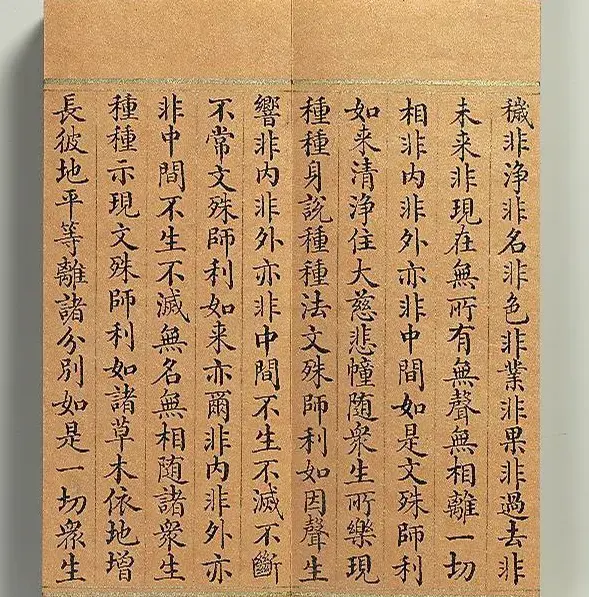 穢非淨非名非色非業非果非過去非
未来非現在無所有無聲無相離一切
相非内非外亦非中間如是文殊師利
如来清淨住大慈悲幢随衆生所樂現
種種身說種種法文殊師利如因聲生
響非内非外亦非中間不生不滅不斷
不常文殊師利如来亦爾非内非外亦
非中間不生不滅無名無相随諸衆生
種種示現文殊師利如諸草木依地增
長彼地平等離諸分別如是一切衆生